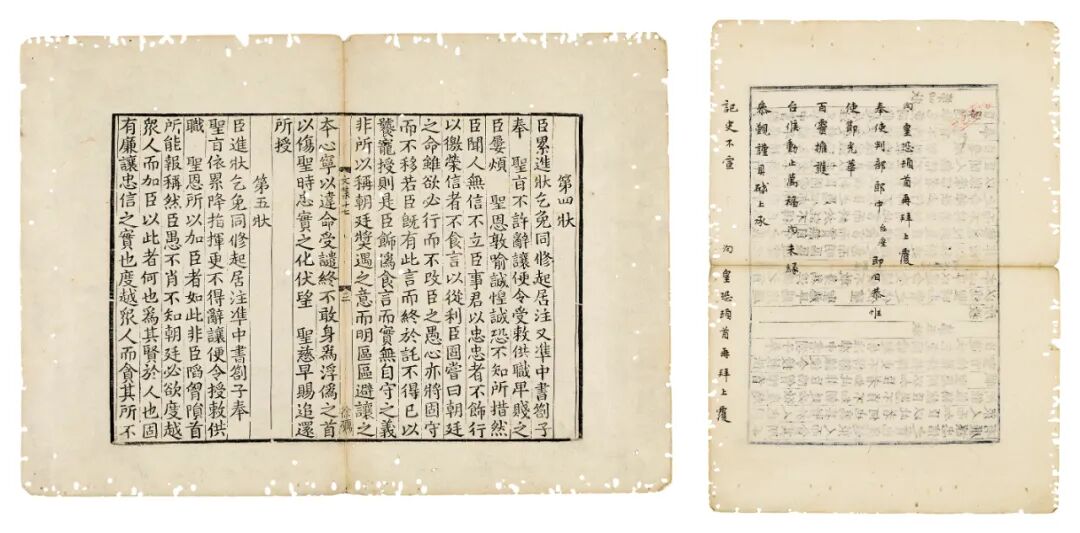 第四狀
臣累進狀乞免同修起居注又準中書劄子
奉 聖旨不許辭讓便令受敕供職卑賤之
臣屢煩 聖恩敦喻誠惶誠恐不知所措然
臣聞人無信不立臣事君以忠忠者不飾行
以徼榮信者不食言以從利臣固嘗曰朝廷
之命雖欲必行而不改臣之愚心亦將固守
而不移若臣旣有此言而終於託不得已以
饕寵授則是臣飾僞食言而實無自守之義
非所以稱朝廷奬遇之意而明區區避讓之
文集十七 二
本心寧以違命受譴終不敢身爲浮僞之首
以傷聖時忠實之化伏望 聖慈早賜追還
所授
第五狀
臣進狀乞免同修起居注準中書劄子奉
聖旨依累降指揮更不得辭讓便令授敕供
職 聖恩所以加臣者如此非臣隕首
所能報稱然臣愚不肖不知朝廷必欲度越
衆人而加臣以此者何也爲其賢於人也固
有廉讓忠信之實也度越衆人而貪其所不
洵 皇恐頓首再拜上覆
奉使判部郎中台座即日恭惟
使節光華
百靈擁護
台候動止萬福洵未緣
參觀謹具啟上承
記史不宣
洵 皇恐頓首再拜上覆